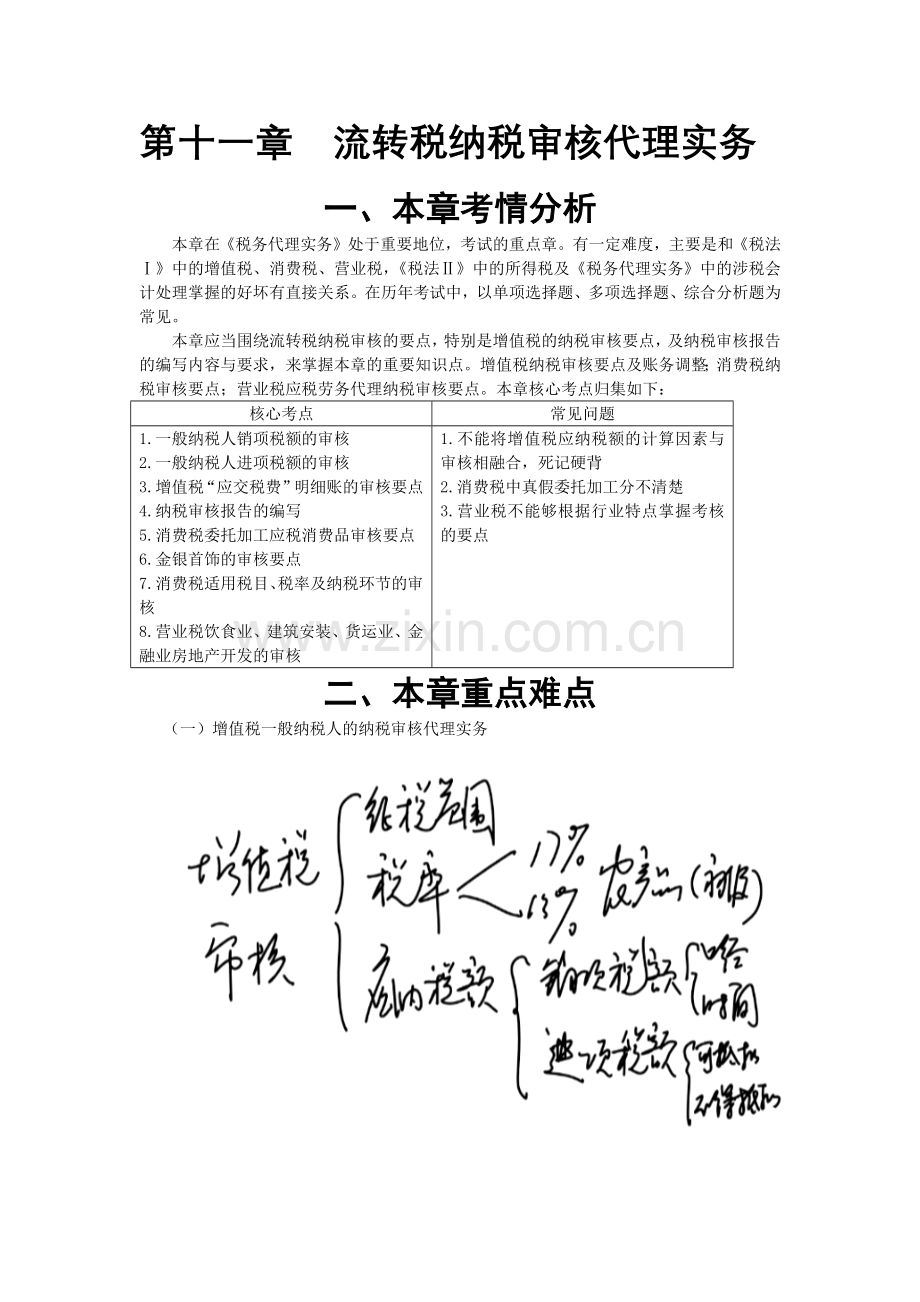 第十一章　流转税纳税审核代理实务
一、本章考情分析
本章在《税务代理实务》处于重要地位，考试的重点章。有一定难度，主要是和《税法
Ⅰ》中的增值税、消费税、营业税，《税法Ⅱ》中的所得税及《税务代理实务》中的涉税会
计处理掌握的好坏有直接关系。在历年考试中，以单项选择题、多项选择题、综合分析题为
常见。
本章应当围绕流转税纳税审核的要点，特别是增值税的纳税审核要点，及纳税审核报告
的编写内容与要求，来掌握本章的重要知识点。增值税纳税审核要点及账务调整；消费税纳
税审核要点；营业税应税劳务代理纳税审核要点。本章核心考点归集如下：
核心考点
1.一般纳税人销项税额的审核
2.一般纳税人进项税额的审核
3.增值税“应交税费”明细账的审核要点
4.纳税审核报告的编写
5.消费税委托加工应税消费品审核要点
6.金银首饰的审核要点
7.消费税适用税目、税率及纳税环节的审
核
8.营业税饮食业、建筑安装、货运业、金
融业房地产开发的审核
常见问题
1.不能将增值税应纳税额的计算因素与
审核相融合，死记硬背
2.消费税中真假委托加工分不清楚
3.营业税不能够根据行业特点掌握考核
的要点
www.zixin.com.cn
二、本章重点难点
（一）增值税一般纳税人的纳税审核代理实务
增值税
审核
征税范围
税率
17%
13% 农产品(初级)
应纳税额
销项税额
时间
进项税额
可抵扣
不得抵扣